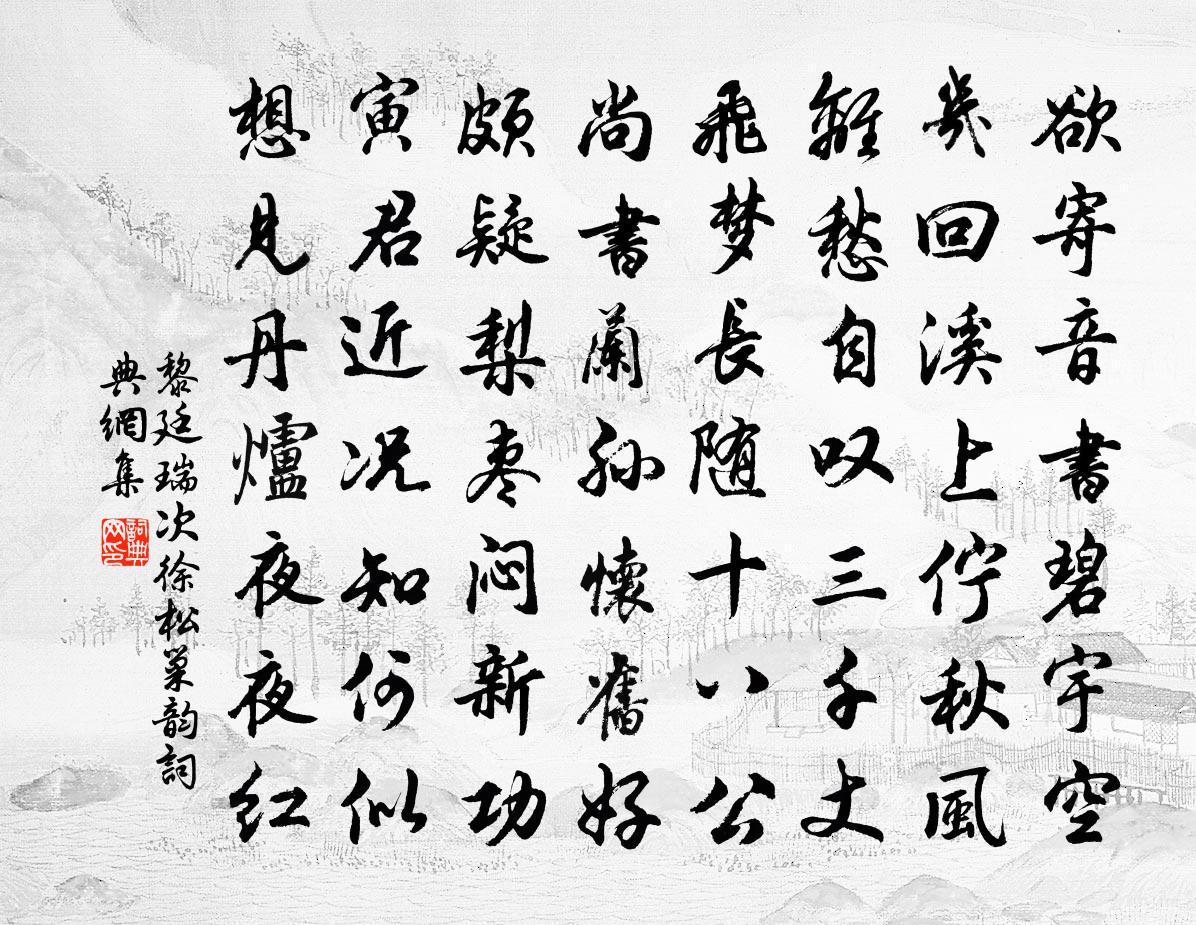 欲寄音書碧宇空
幾回溪上佇秋風
離愁自叹三千丈
飛梦長随十八公
尚書蘭孙懷舊好
頗疑梨枣闷新功
寅君近况知何似
想見丹爐夜夜红
黎廷瑞次徐松巢韵詞
典網集
詞典
网印